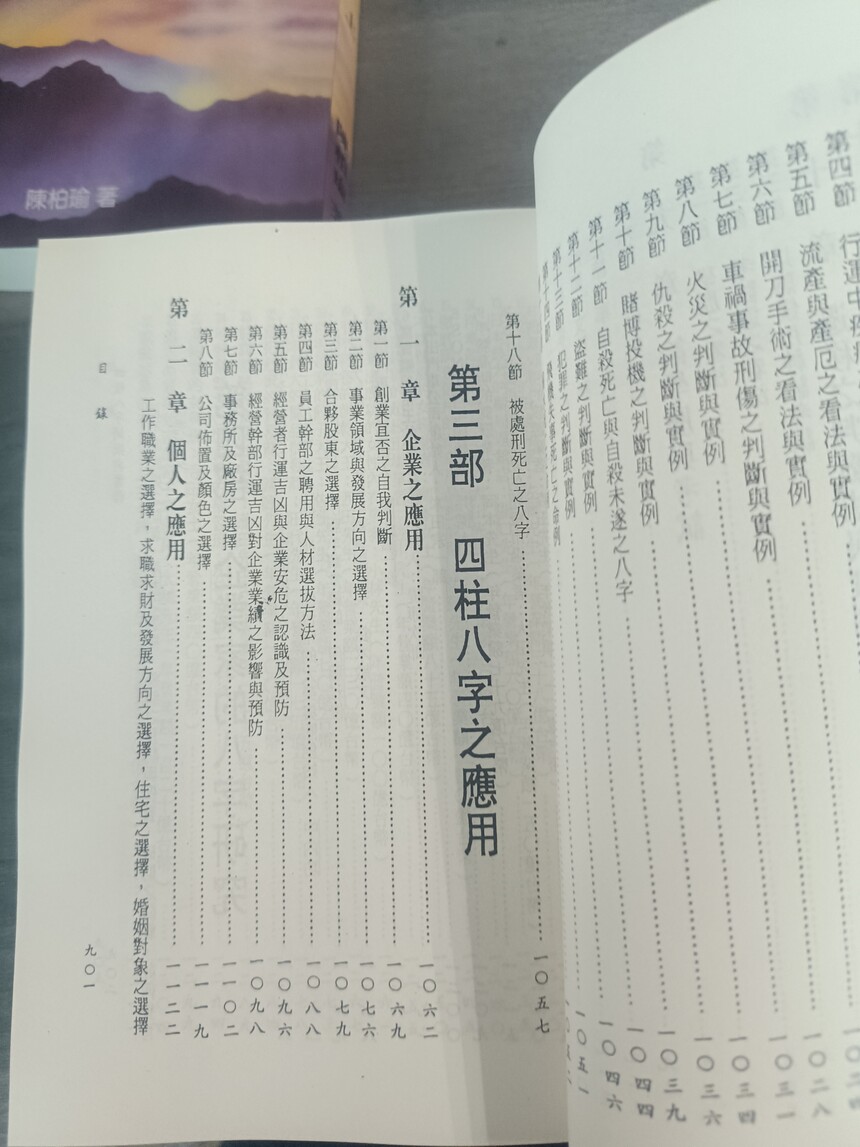 陳柏瑜 著
第四節 行運中
第五節 流產與產厄之看法與實例 一〇二八
第六節 開刀手術之看法與實例 一〇三一
第七節 車禍事故刑傷之判斷與實例 一〇三四
第八節 火災之判斷與實例 一〇三六
第九節 仇殺之判斷與實例 一〇三九
第十節 賭博投機之判斷與實例 一〇四四
第十一節 自殺死亡與自殺未遂之八字 一〇四六
第十二節 盜難之判斷與實例 一〇五一
第十三節 犯罪之判斷與實例
第十四節
第十八節 被處刑死亡之八字 一〇五七
第三部 四柱八字之應用
第一章 企業之應用 一〇六二
第一節 創業宜否之自我判斷 一〇六九
第二節 事業領域與發展方向之選擇 一〇七六
第三節 合夥股東之選擇 一〇七九
第四節 員工幹部之聘用與人材選拔方法 一〇八八
第五節 經營者行運吉凶與企業安危之認識及預防 一〇九六
第六節 經營幹部行運吉凶對企業業績之影響與預防 一〇九八
第七節 事務所及廠房之選擇 一一〇二
第八節 公司佈置及顏色之選擇 一一一九
第二章 個人之應用 一一二二
工作職業之選擇，求職求財及發展方向之選擇，住宅之選擇，婚姻對象之選擇
目錄
九〇一